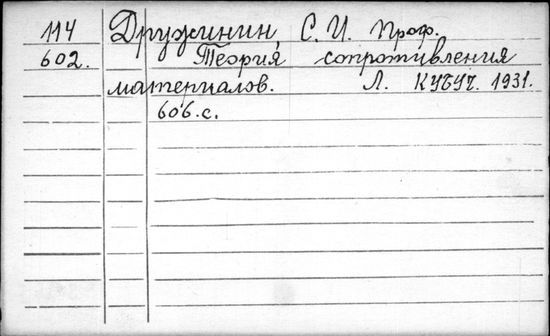 114 Дружинин, С. И. Проф.
602. Теория сопротивления
материалов. Л. КУБУЧ. 1931.
606 с.